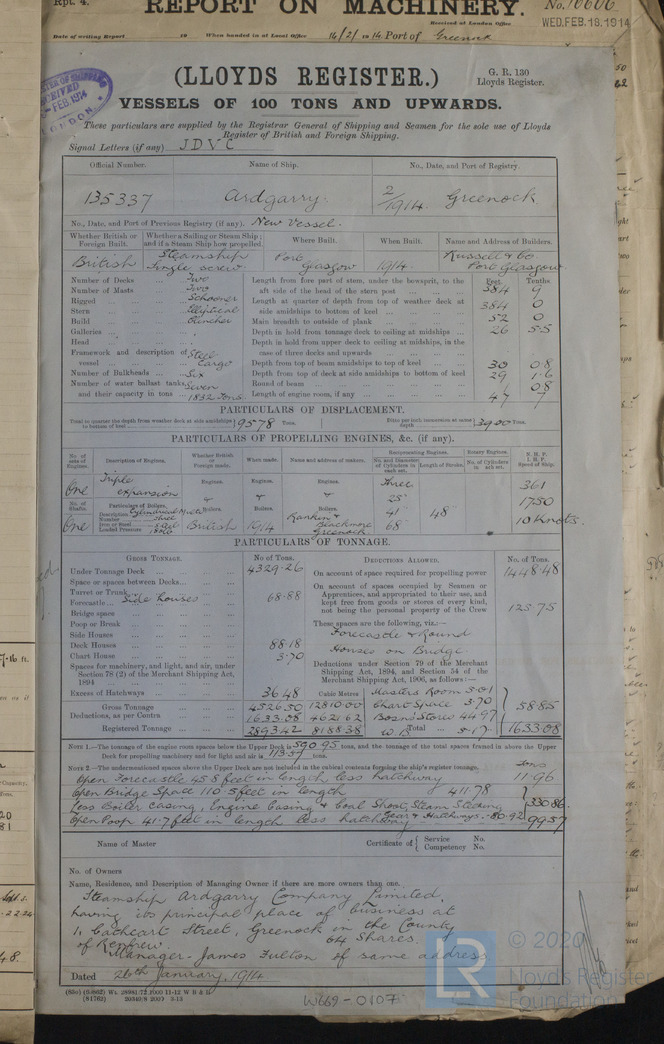 Rpt. 4.
REPORT ON MACHINERY. No. 10606
Received at London Office WED. FEB. 18. 1914
Date of writing Report 19 When handed in at Local Office 16/2/1914 Port of Greenock
(LLOYDS REGISTER.)
G. R. 130
Lloyds Register.
VESSELS OF 100 TONS AND UPWARDS.
These particulars are supplied by the Registrar General of Shipping and Seamen for the sole use of Lloyds
Register of British and Foreign Shipping.
Signal Letters (if any) JDVC
Official Number. Name of Ship. No., Date, and Port of Registry.
135337 Ardgarry. 2/1914. Greenock
No., Date, and Port of Previous Registry (if any). New Vessel.
Whether British or Foreign Built. Whether a Sailing or Steam Ship; and if a Steam Ship how propelled. Where Built. When Built. Name and Address of Builders.
British Steamship Single screw Port Glasgow 1914. Russell & Co. Port Glasgow
Number of Decks Two
Number of Masts Two
Rigged Schooner
Stern Elliptical
Build Clencher
Galleries
Head
Framework and description of vessel Steel Cargo
Number of Bulkheads Six
Number of water ballast tanks and their capacity in tons Seven 1832 Tons.
Feet. Tenths.
Length from fore part of stem, under the bowsprit, to the aft side of the head of the stern post 384 9
Length at quarter of depth from top of weather deck at side amidships to bottom of keel 384 0
Main breadth to outside of plank 52 0
Depth in hold from tonnage deck to ceiling at midships 26 5.5
Depth in hold from upper deck to ceiling at midships, in the case of three decks and upwards
Depth from top of beam amidships to top of keel 30 0.8
Depth from top of deck at side amidships to bottom of keel 29 1.6
Round of beam 0.8
Length of engine room, if any 47 7
PARTICULARS OF DISPLACEMENT.
Total to quarter the depth from weather deck at side amidships to bottom of keel 9578 Tons. Ditto per inch immersion at same depth 3900 Tons.
PARTICULARS OF PROPELLING ENGINES, &c. (if any).
No. of sets of Engines. Description of Engines. Whether British or Foreign made. When made. Name and address of makers. Reciprocating Engines. Rotary Engines. N. H. P. I. H. P. Speed of Ship.
No. and Diameter of Cylinders in each set. Length of Stroke. No. of Cylinders in each set.
One Triple expansion Engines. Engines. Engines. Three 25" 41" 68" 48" 361 1750 10 Knots.
No. of Shafts. Particulars of Boilers. Boilers. Boilers. Boilers.
One Description Cylindrical Multi
Number Three
Iron or Steel Steel
Loaded Pressure
British 1914 Rankin & Blackmore Greenock
PARTICULARS OF TONNAGE.
GROSS TONNAGE. No of Tons. DEDUCTIONS ALLOWED. No. of Tons.
Under Tonnage Deck 4329.26
Space or spaces between Decks
Turret or Trunk
Forecastle Side houses 68.88
Bridge space
Poop or Break
Side Houses
Deck Houses 88.18
Chart House 3.70
Spaces for machinery, and light, and air, under Section 78 (2) of the Merchant Shipping Act, 1894
Excess of Hatchways 36.48 Cubic Metres
Gross Tonnage 4526.50 12810.00
Deductions, as per Contra 1633.08 4621.62
Registered Tonnage 2893.42 8188.38
On account of space required for propelling power 1448.48
On account of spaces occupied by Seamen or Apprentices, and appropriated to their use, and kept free from goods or stores of every kind, not being the personal property of the Crew 125.75
These spaces are the following, viz.:—
Forecastle & Round
Houses on Bridge
Deductions under Section 79 of the Merchant Shipping Act, 1894, and Section 54 of the Merchant Shipping Act, 1906, as follows:—
Masters Room 5.01
Chart Space 3.70
Boatns Stores 44.97
W.B. 5.17
58.85
Total 1633.08
NOTE 1.—The tonnage of the engine room spaces below the Upper Deck is 590.95 tons, and the tonnage of the total spaces framed in above the Upper
Deck for propelling machinery and for light and air is 113.57 tons.
NOTE 2.—The undermentioned spaces above the Upper Deck are not included in the cubical contents forming the ship's register tonnage. Tons
Open Forecastle 45.8 feet in length less hatchway 11.96
Open Bridge Space 110.5 feet in length 411.78
Less Boiler Casing, Engine Casing & Coal Shoot, Steam Steering Gear & Hatchways - 80.92 330.86
Open Poop 41.7 feet in length less hatchway 99.57
Name of Master Certificate of Service No. Competency No.
No. of Owners
Name, Residence, and Description of Managing Owner if there are more owners than one.
Steamship Ardgarry Company Limited,
having its principal place of business at
11 Cathcart Street, Greenock in the County
of Renfrew. 64 Shares.
Manager - James Fulton of same address
Dated 26th January, 1914
(85c) (94862) Wt. 28981/72 2000 11-12 W B & L
(81762) 20349/8 2000 3-13
W669-0107
© 2020
Lloyd's Register
Foundation
LR